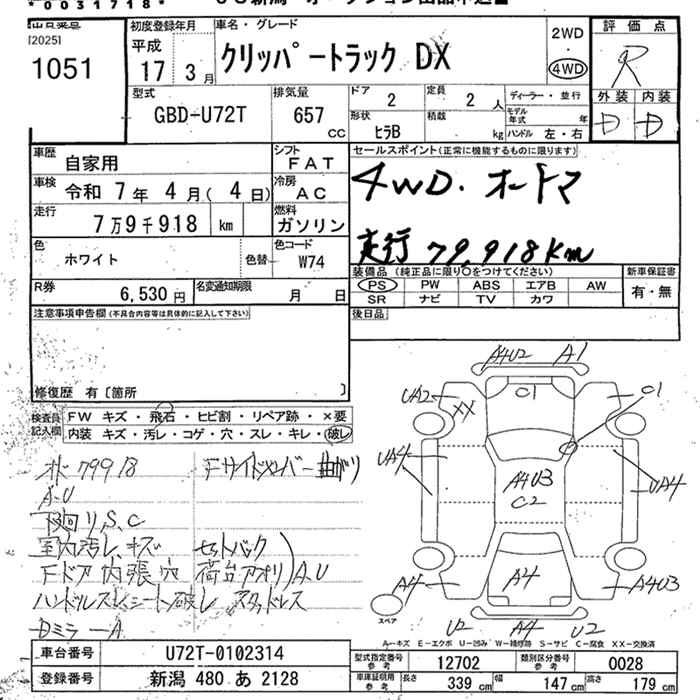 *0031718*
[2025]
1051
初度登録年月
平成
17年 3月
車名・グレード
クリッパートラック DX
2WD
・
4WD
評価点
R
外装 内装
D D
型式
GBD-U72T
排気量
657 CC
ドア
2
定員
2 人
形状
ヒラB
積載
kg
ディーラー・並行
モデル年式 年
ハンドル 左・右
車歴
自家用
シフト
FAT
車検
令和 7年 4月( 4日)
冷房
AC
走行
7万9千918 km
燃料
ガソリン
色
ホワイト
色替
色コード
W74
R券
6,530円
名変通知期限
月 日
セールスポイント(正常に機能するものに限ります)
4WD. オートマ
走行 79,918Km
装備品 (純正品に限り○をつけてください)
PS PW ABS エアB AW
SR ナビ TV カワ
新車保証書
有・無
後日品
注意事項申告欄(不具合内容等は具体的に記入して下さい)
修復歴 有〔箇所 〕
検査員記入欄
FW キズ・飛石・ヒビ割・リペア跡・×要
内装 キズ・汚レ・コゲ・穴・スレ・キレ・破レ
オド 79918 Fサイドメンバー 曲がり
A.U
下廻り S、C
室内汚レ、キズ セットバック
Fドア内張穴 荷台アオリ A.U
ハンドルスレ シート破レ
Dミラ-A
A4U2 A1
UA2
XX
C1
C1
UA4
A4U3
C2
UA4
A4
A4
A4U3
U2 A4 U2
スペア
A-キズ E-エクボ U-凹み W-補修跡 S-サビ C-腐食 XX-交換済
車台番号
U72T-0102314
登録番号
新潟 480 あ 2128
型式指定番号
12702
類別区分番号
0028
車体証明用
長さ 339 cm
幅 147 cm
高さ 179 cm